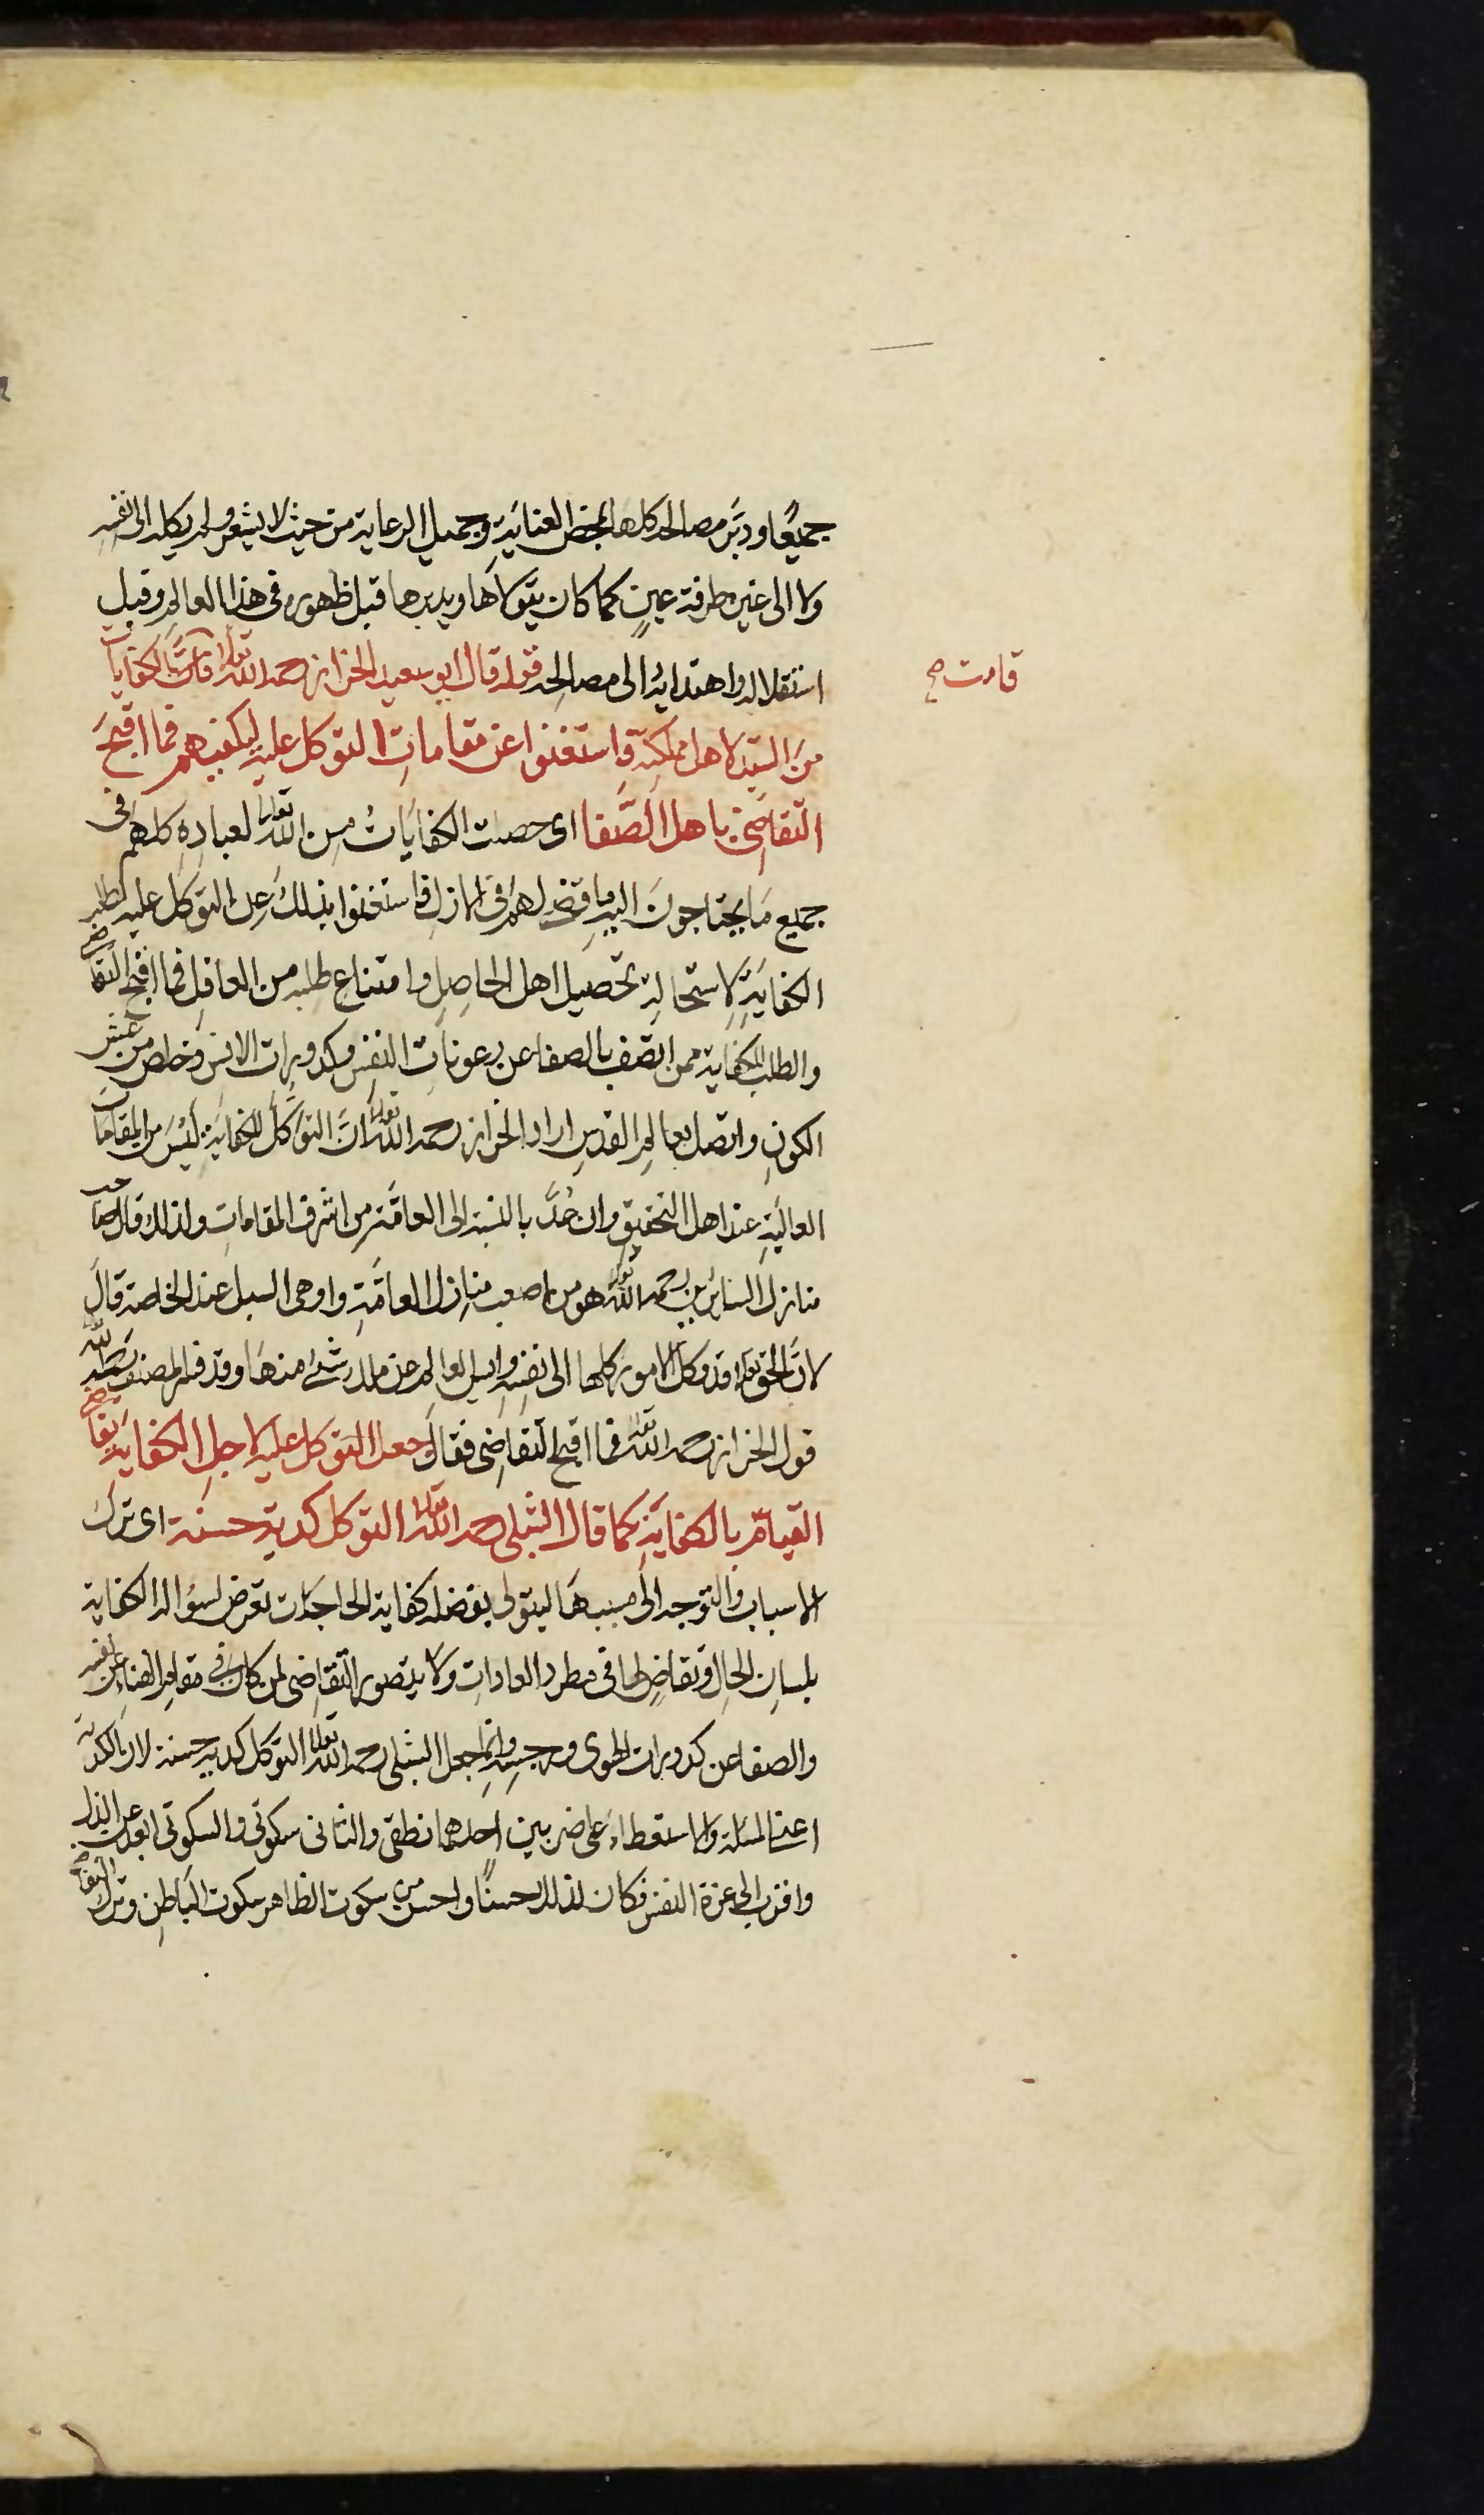 جميعًا ودبَّر مصالحه كلها بمحض العناية وجميل الرعاية من حيث لا يشعر ولم يكله الى نفسه
ولا الى غيره طرفة عينٍ كما كان يتولاها ويدبرها قبل ظهوره فى هذا العالم وقبل
استقلاله واهتدايه الى مصالحه قوله قال ابو سعيد الخراز رحمه الله تعالى قامت الكفايات
قامت صح
من السيّد لاهل مملكته فاستغنوا عن مقاماتِ التوكل عليه ليكفيهم فما اقبحَ
التقاضِى باهل الصَّفا اى حصلت الكفايات من الله تعالى لعبادِهِ كلهم فى
جميع مَا يحتاجون اليه ما قضى لهم فى الازل فاستغنوا بذلك عن التوكل عليه لطلب
الكفايةِ لاستحالة تحصيل اهل الحاصِل وامتناع طلبه من العاقل فما اقبح التقاضى
والطلب للكفاية ممن اتصف بالصفا عن رعونات النفس وكدورات الانس وخلص من
الكونِ واتصل بعالم القدس اراد الخراز رحمه الله تعالى انَّ التوكّل للكفاية ليس من المقامات
العاليةِ عند اهل التحقيق وان عُدَّ بالنسبة الى العامّة من اشرف المقامات ولذلك قال صاحب
منازل السائرين رحمه الله تعالى هو من اصعب منازل العامّةِ واوهى السبل عند الخاصة قال
لانَّ الحق تعالى قد وكل الامور كلها الى نفسه وايس العالم من ملك شئ منها وقد فسر المصنف رحمه الله
قول الخراز رحمه الله تعالى فما اقبح التقاضى فقال وجعل التوكل عليه لاجل الكفاية تقاضى
القيام بالكفايةِ كما قال الشبلى رحمه الله تعالى التوكل كدية حسنة اى ترك
الاسباب والتوجه الى مسببها ليتولى بفضله كفاية الحاجات تعرض لسؤال الكفاية
بلسانِ الحال وتقاضٍ لها فى مطرد العاداتِ ولا يتصور التقاضى لمن كان فى مقام الفناء عن نفسه
والصفا عن كدورات الهوى ورجسه وانما جعل الشبلى رحمه الله تعالى التوكل كدية حسنة لان الكدية
اعنى المسئلة والاستعطاء على ضربين احدهما نطقى والثانى سكوتى والسكوتى ابعد عن الذل
واقرب الى عزة النفس فكان لذلك حسنًا واحسن من سكوت الظاهر سكوت الباطن وترك التقاضى